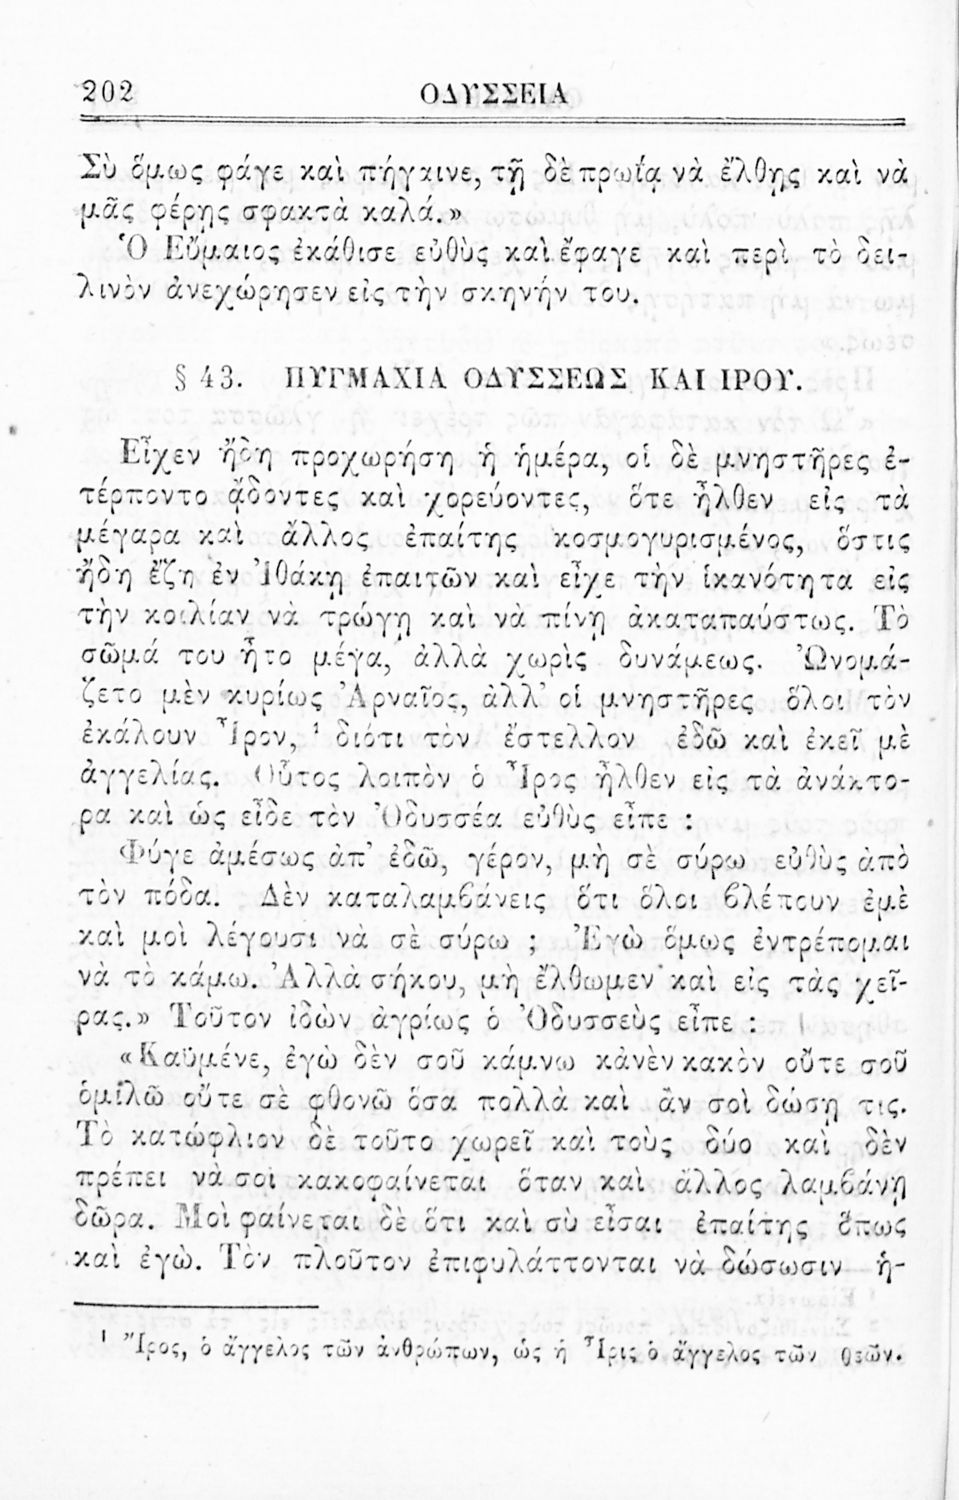 202 ΟΔΥΣΣΕΙΑ
Σὺ ὅμως φάγε καὶ πήγαινε, τῇ δὲ πρωΐᾳ νὰ ἔλθῃς καὶ νὰ
μᾶς φέρῃς σφακτὰ καλά.»
Ὁ Εὔμαιος ἐκάθισε εὐθὺς καὶ ἔφαγε καὶ περὶ τὸ δει-
λινὸν ἀνεχώρησεν εἰς τὴν σκηνήν του.
§ 43. ΠΥΓΜΑΧΙΑ ΟΔΥΣΣΕΩΣ ΚΑΙ ΙΡΟΥ.
Εἶχεν ἤδη προχωρήσῃ ἡ ἡμέρα, οἱ δὲ μνηστῆρες ἐ-
τέρποντο ᾄδοντες καὶ χορεύοντες, ὅτε ἦλθεν εἰς τὰ
μέγαρα καὶ ἄλλος ἐπαίτης κοσμογυρισμένος, ὅστις
ἤδη ἔζη ἐν Ἰθάκῃ ἐπαιτῶν καὶ εἶχε τὴν ἱκανότητα εἰς
τὴν κοιλίαν νὰ τρώγῃ καὶ νὰ πίνῃ ἀκαταπαύστως. Τὸ
σῶμά του ἦτο μέγα, ἀλλὰ χωρὶς δυνάμεως. Ὠνομά-
ζετο μὲν κυρίως Ἀρναῖος, ἀλλ’ οἱ μνηστῆρες ὅλοι τὸν
ἐκάλουν Ἶρον, ¹ διότι τὸν ἔστελλον ἐδῶ καὶ ἐκεῖ μὲ
ἀγγελίας. Οὗτος λοιπὸν ὁ Ἶρος ἦλθεν εἰς τὰ ἀνάκτο-
ρα καὶ ὡς εἶδε τὸν Ὀδυσσέα εὐθὺς εἶπε :
Φύγε ἀμέσως ἀπ’ ἐδῶ, γέρον, μὴ σὲ σύρω εὐθὺς ἀπὸ
τὸν πόδα. Δὲν καταλαμβάνεις ὅτι ὅλοι βλέπουν ἐμὲ
καὶ μοὶ λέγουσι νὰ σὲ σύρω ; Ἐγὼ ὅμως ἐντρέπομαι
νὰ τὸ κάμω. Ἀλλὰ σήκου, μὴ ἔλθωμεν καὶ εἰς τὰς χεῖ-
ρας.» Τοῦτον ἰδὼν ἀγρίως ὁ Ὀδυσσεὺς εἶπε :
«Καϋμένε, ἐγὼ δὲν σοῦ κάμνω κἀνὲν κακὸν οὔτε σοῦ
ὁμιλῶ οὔτε σὲ φθονῶ ὅσα πολλὰ καὶ ἂν σοὶ δώσῃ τις.
Τὸ κατώφλιον δὲ τοῦτο χωρεῖ καὶ τοὺς δύο καὶ δὲν
πρέπει νὰ σοι κακοφαίνεται ὅταν καὶ ἄλλος λαμβάνῃ
δῶρα. Μοὶ φαίνεται δὲ ὅτι καὶ σὺ εἶσαι ἐπαίτης ὅπως
καὶ ἐγώ. Τὸν πλοῦτον ἐπιφυλάττονται νὰ δώσωσιν ἡ-
¹ Ἴρος, ὁ ἄγγελος τῶν ἀνθρώπων, ὡς ἡ Ἶρις ὁ ἄγγελος τῶν θεῶν.